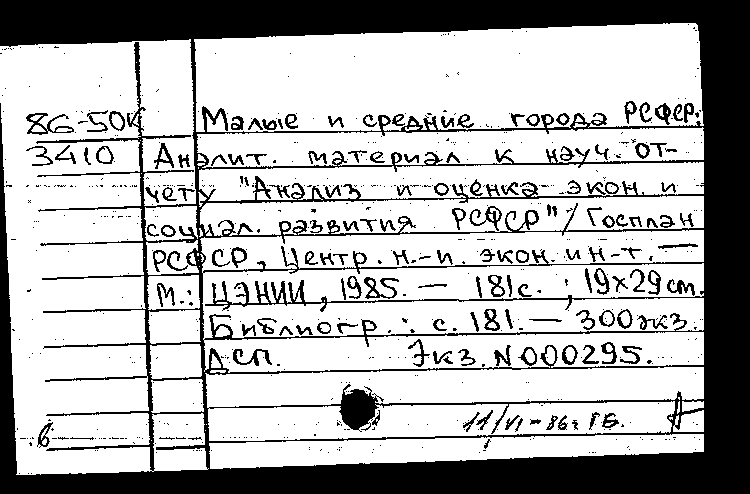 86-50К Малые и средние города РСФСР:
3410 Аналит. материал к науч. от-
чету "Анализ и оценка экон. и
социал. развития РСФСР" / Госплан
РСФСР, Центр. н.-и. экон. ин-т. —
М.: ЦЭНИИ, 1985. — 181 с. ; 19х29 см.
Библиогр.: с. 181. — 300 экз.
ДСП. Экз. N 000295.
11/VI-86г
А